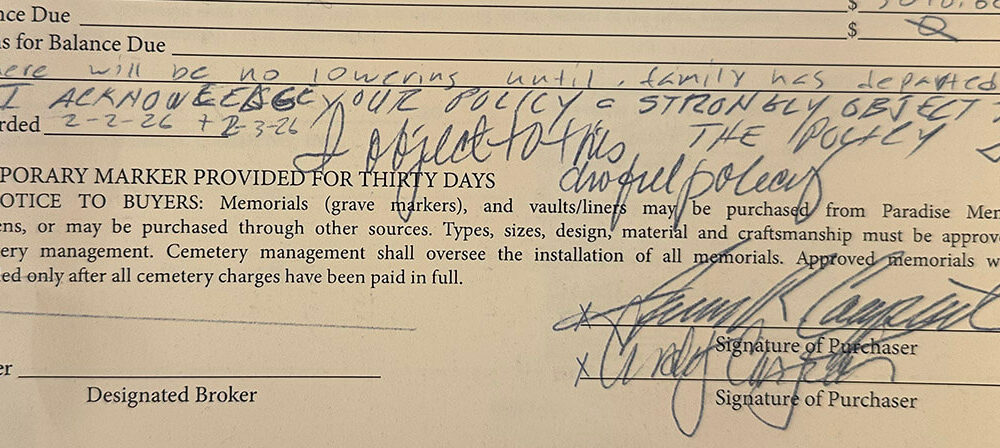 nce Due $
s for Balance Due $ 0
ere will be no lowering until family has departed
I ACKNOWLEDGE YOUR POLICY & STRONGLY OBJECT
rded 2-2-26 + 2-3-26 THE POLICY
I object to this
PORARY MARKER PROVIDED FOR THIRTY DAYS
policy
OTICE TO BUYERS: Memorials (grave markers), and vaults/liners may be purchased from Paradise Mem
ns, or may be purchased through other sources. Types, sizes, design, material and craftsmanship must be approv
ery management. Cemetery management shall oversee the installation of all memorials. Approved memorials w
ed only after all cemetery charges have been paid in full.
X
Signature of Purchaser
er X
Designated Broker Signature of Purchaser